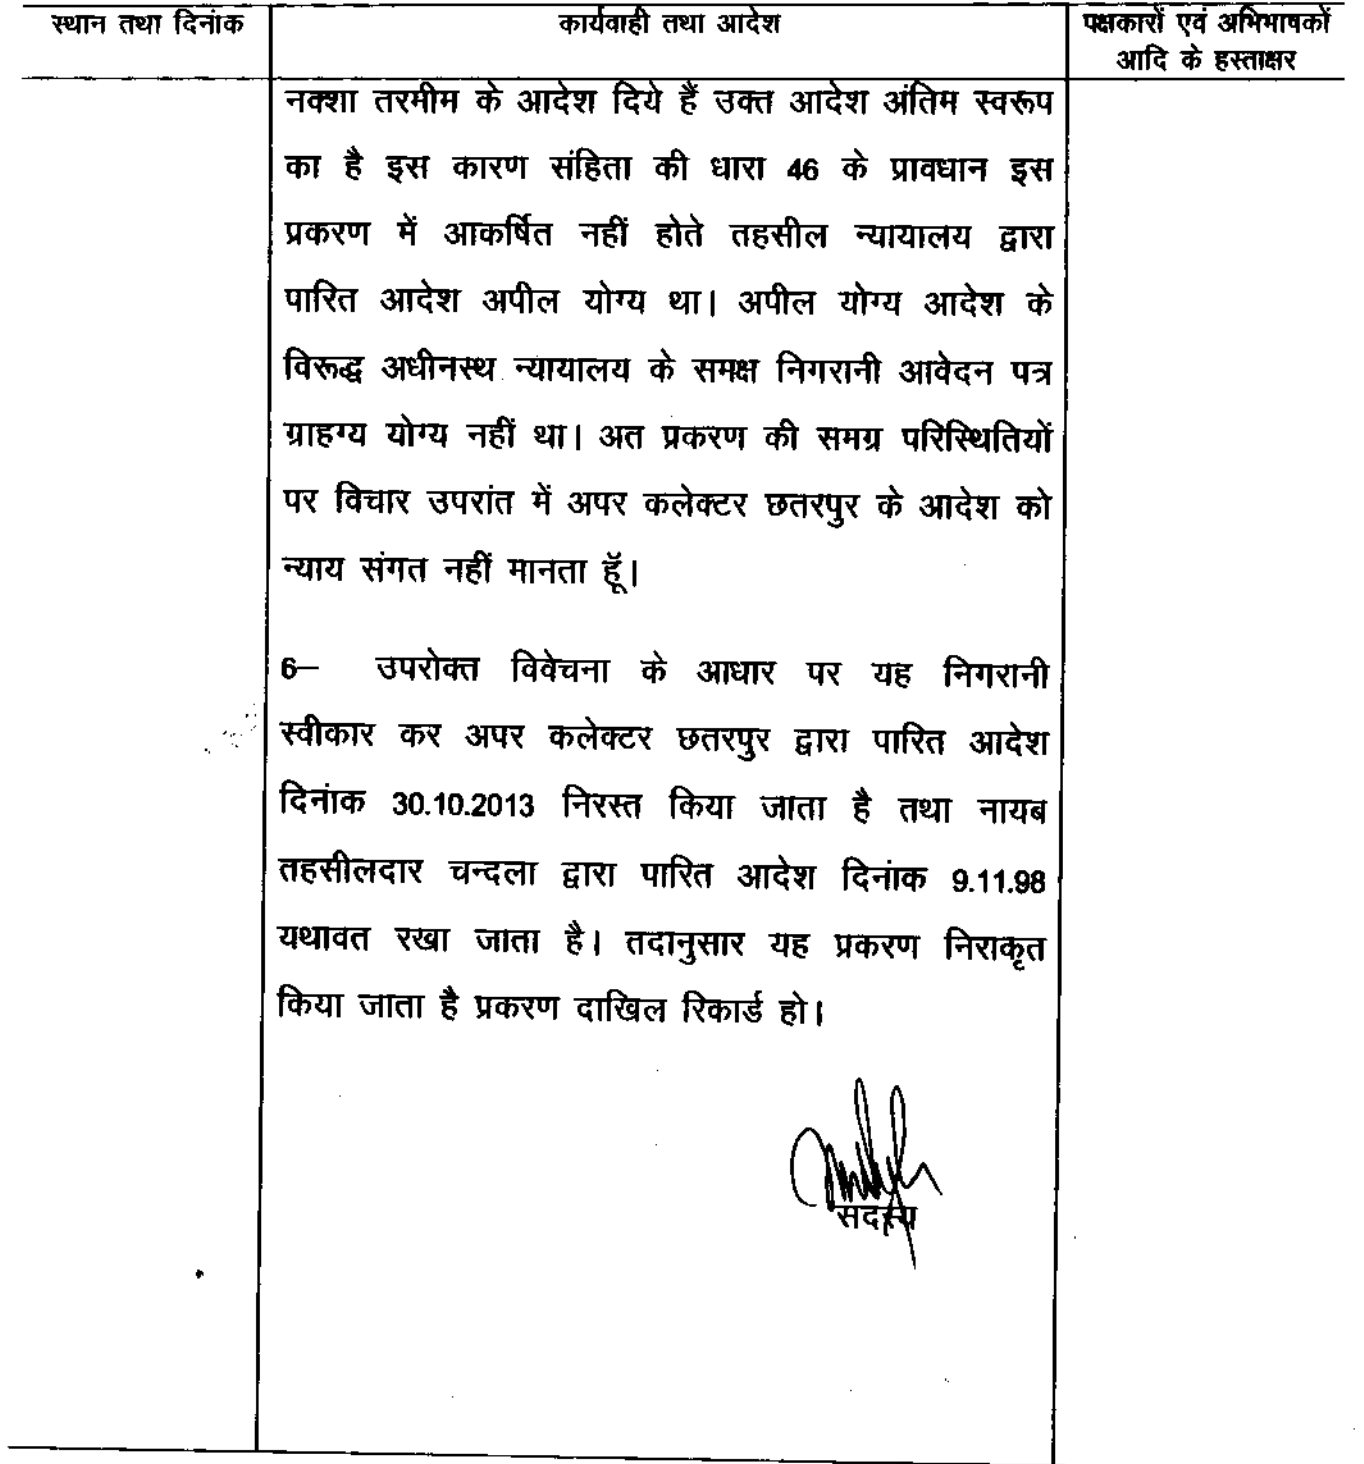 स्थान तथा दिनांक
कार्यवाही तथा आदेश
पक्षकारों एवं अभिभाषकों
आदि के हस्ताक्षर
नक्शा तरमीम के आदेश दिये हैं उक्त आदेश अंतिम स्वरूप
का है इस कारण संहिता की धारा 46 के प्रावधान इस
प्रकरण में आकर्षित नहीं होते तहसील न्यायालय द्वारा
पारित आदेश अपील योग्य था। अपील योग्य आदेश के
विरूद्ध अधीनस्थ न्यायालय के समक्ष निगरानी आवेदन पत्र
ग्राहग्य योग्य नहीं था। अत प्रकरण की समग्र परिस्थितियों
पर विचार उपरांत में अपर कलेक्टर छतरपुर के आदेश को
न्याय संगत नहीं मानता हूॅ।
6– उपरोक्त विवेचना के आधार पर यह निगरानी
स्वीकार कर अपर कलेक्टर छतरपुर द्वारा पारित आदेश
दिनांक 30.10.2013 निरस्त किया जाता है तथा नायब
तहसीलदार चन्दला द्वारा पारित आदेश दिनांक 9.11.98
यथावत रखा जाता है। तदानुसार यह प्रकरण निराकृत
किया जाता है प्रकरण दाखिल रिकार्ड हो।
सदस्य